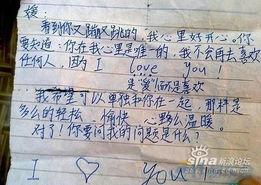 媛:
看到你又蹦又跳的,我心里好开心。你
要知道:你在我心里是唯一的,我不会再去喜欢
任何人,因为 I love you!
是"爱"而不是喜欢
我希望可以单独和你在一起,那样是
多么的轻松、愉快、心里多么温暖。
对了!你要问我的问题是什么?
I ♡ you!
sina新浪论坛